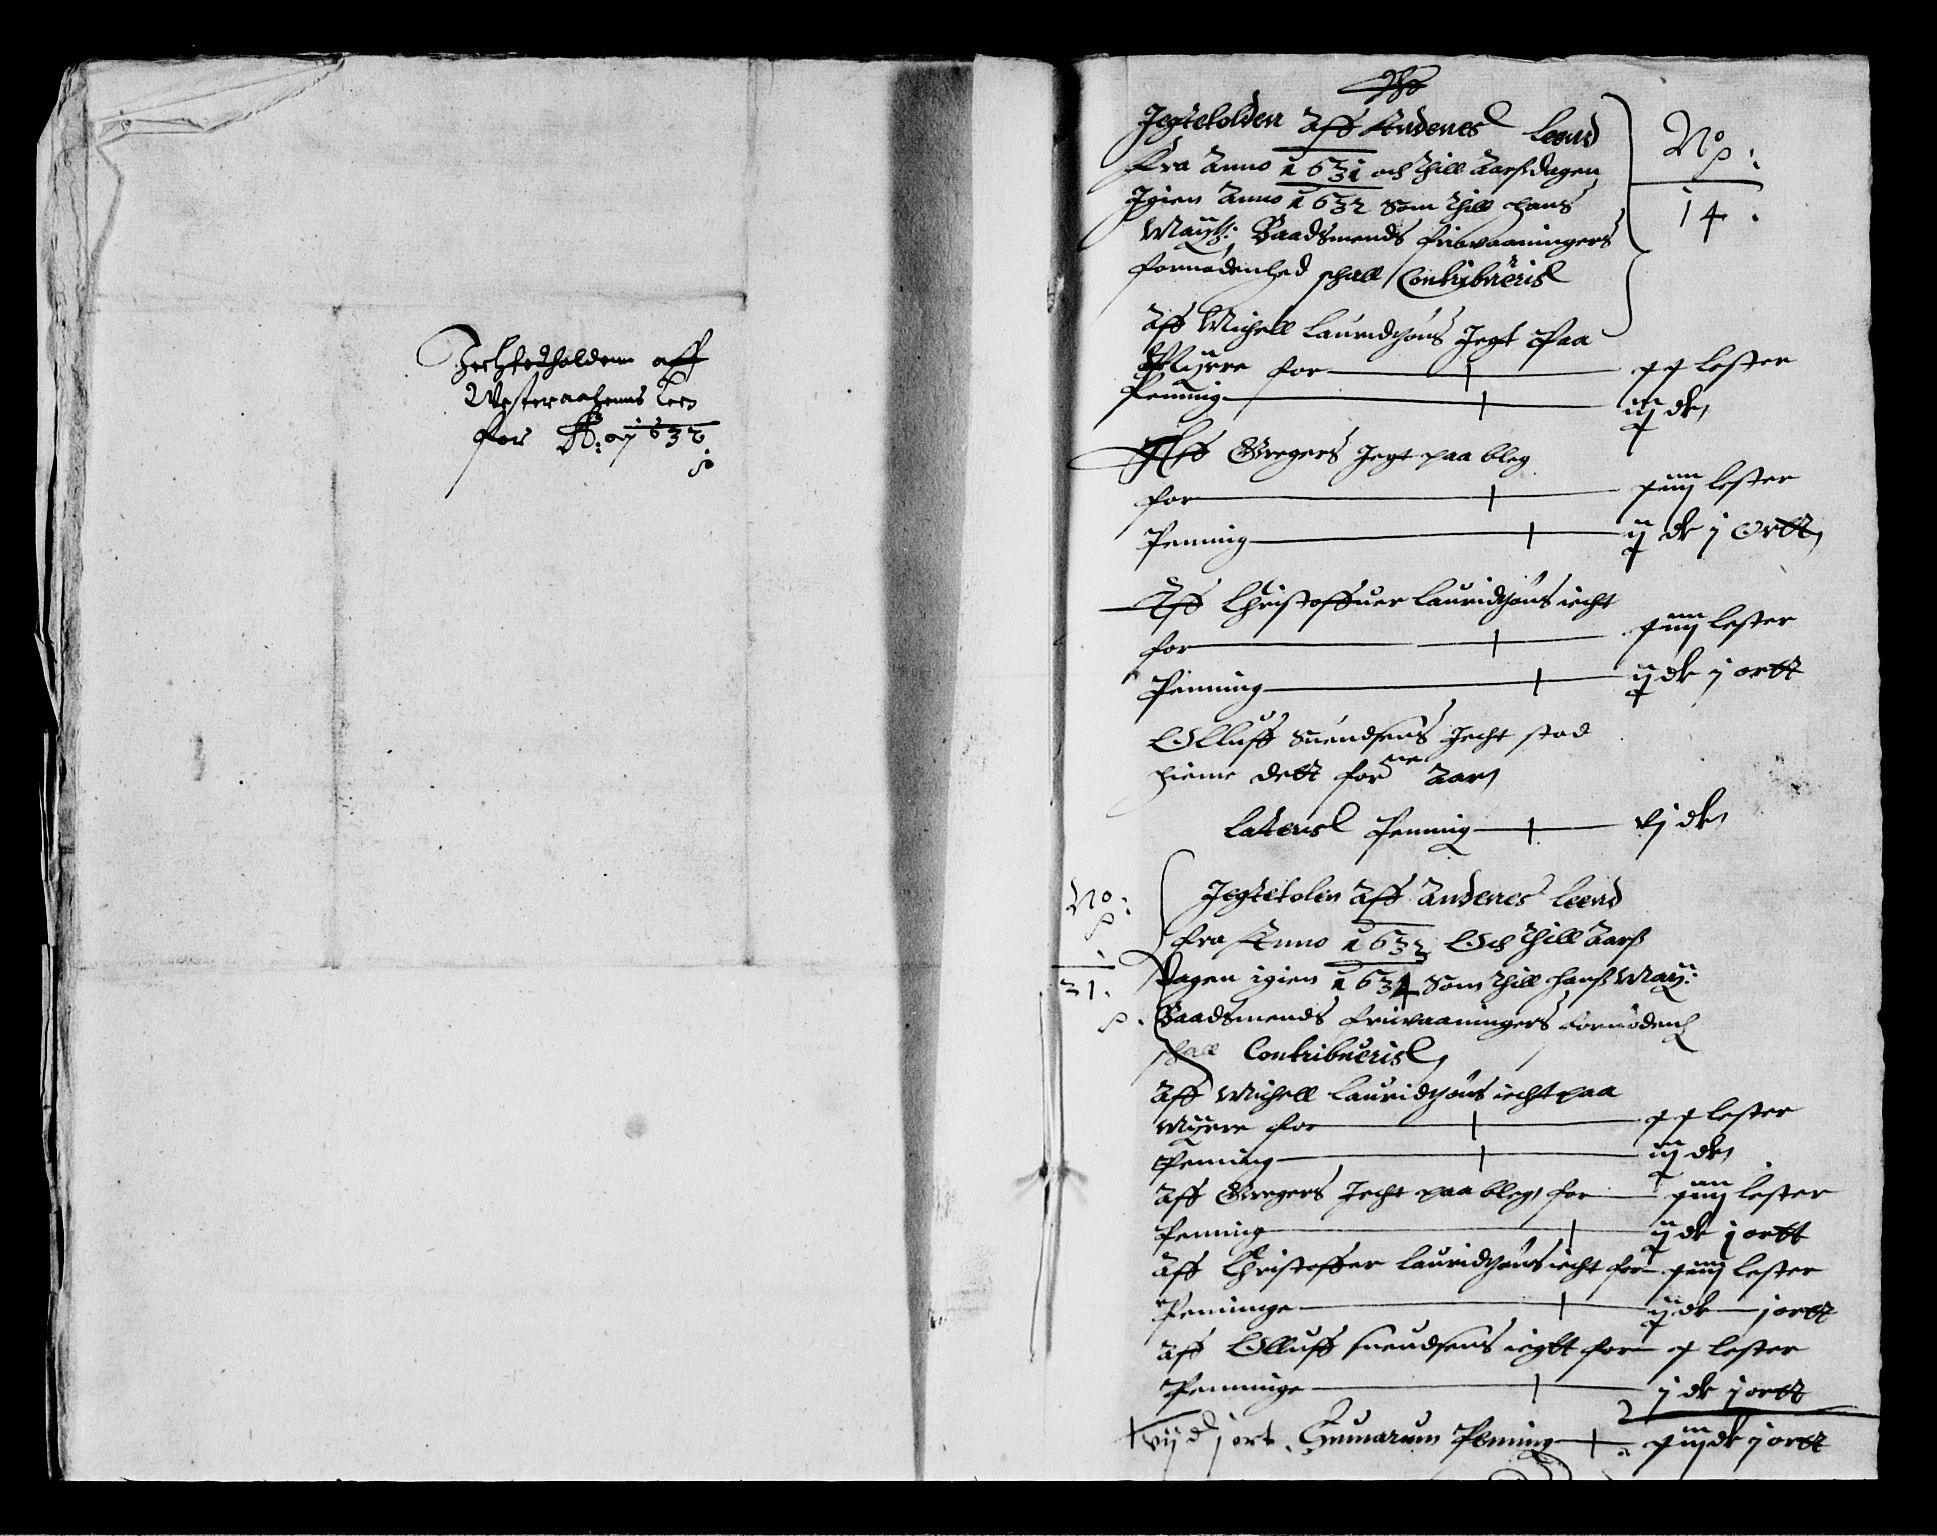 Jechtetholdenn aff
Westeraalenns Leen
for Ao. 1632
Jegtetolden Aff Andenes Leend
Fra Anno 1631 och thill Aarsdagen
Igien Anno 1632 Som thill hans
Maytt: Baadsmends friwaaningers
fornødenhed schall Contribueris
No:
14.
Aff Michell Lauridtzøns Jegt Paa
Myrre for xx Lester
Penning iij dr
Aff Gregers Jegt paa bleg
for xiiij Lester
Penning ij dr j Ortt
Aff Christoffuer Lauridtzøns iecht
for xiiij Lester
Penning ij dr j ortt
Olluff Suendsens Jecht stod
hieme dett for Aar
Lateris Penning vj dr
No:
31.
Jegtetolen Aff Andenes Leend
Fra Anno 1632 Och thill Aars
Dagen igien 1634 Som thill hans May:
Baadsmends friwaaningers fornødenh
schall Contribueris
Aff Michell Lauridtzøns iecht paa
Myrre for xx Lester
Penning iij dr
Aff Gregers Jecht paa bleg for xiiij Lester
Penning ij dr j ortt
Aff Christoffer Lauridtzøns iecht for xiiij Lester
Penninge ij dr j ortt
Aff Olluff suendsens iegtt for x Lester
Penninge j dr j ortt
vij d j ort. Sumarum Penning xiij dr j ortt